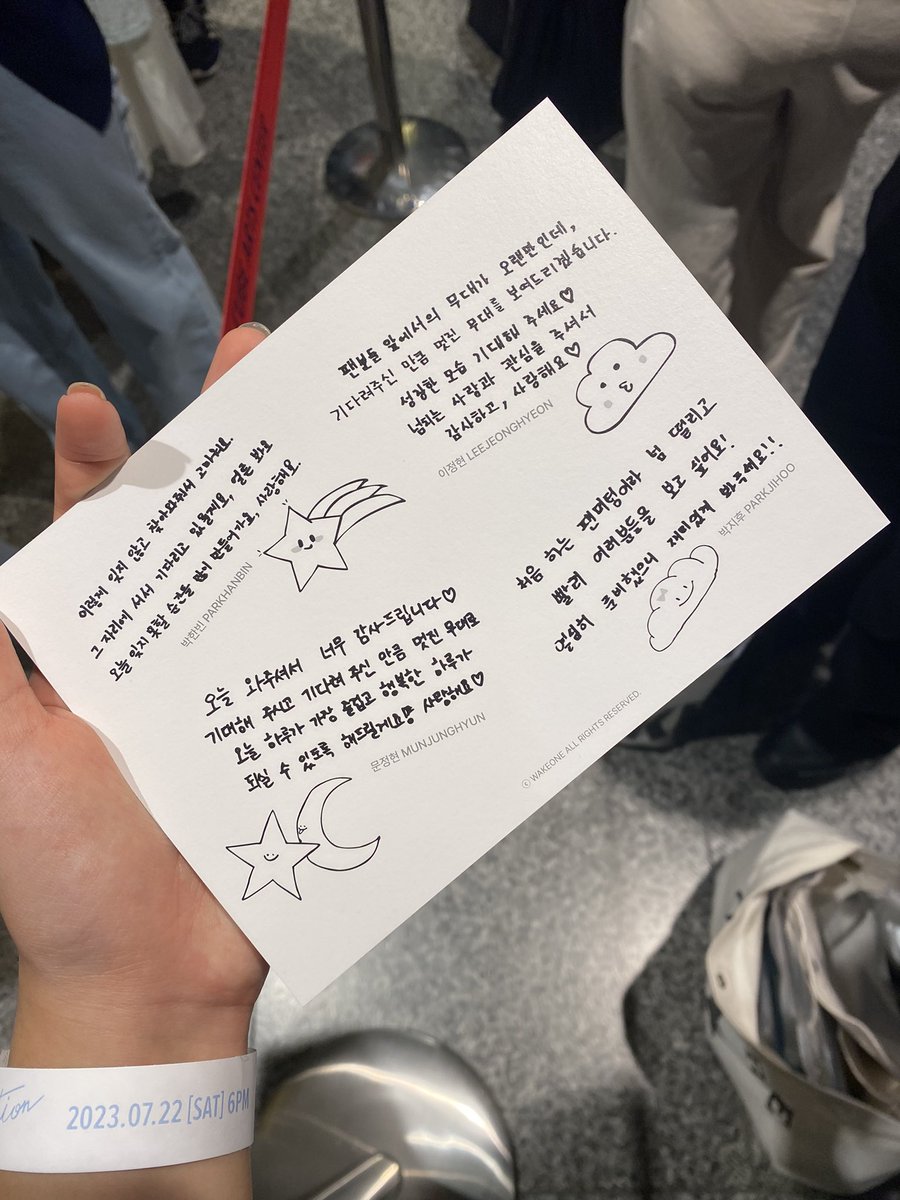 팬분들 앞에서의 무대가 오랜만인데,
기다려주신 만큼 멋진 무대를 보여드리겠습니다.
성장한 모습 기대해 주세요♡
넘치는 사랑과 관심을 주셔서
감사하고, 사랑해요♡
이정현 LEEJEONGHYEON
이렇게 잊지 않고 찾아와줘서 고마워요.
그 자리에 서서 기다리고 있을게요, 얼른 봐요
오늘 잊지 못할 순간을 많이 만들어가요, 사랑해요.
박한빈 PARKHANBIN
처음 하는 팬미팅이라 넘 떨리고
빨리 여러분들을 보고 싶어요!
열심히 준비했으니 재미있게 봐주세요!!
박지후 PARKJIHOO
오늘 와주셔서 너무 감사드립니다♡
기대해 주시고 기다려 주신 만큼 멋진 무대로
오늘 하루가 가장 즐겁고 행복한 하루가
되실 수 있도록 해드릴게요 사랑해요♡
문정현 MUNJUNGHYUN
ⓒ WAKEONE ALL RIGHTS RESERVED.
tion
2023.07.22 [SAT] 6PM